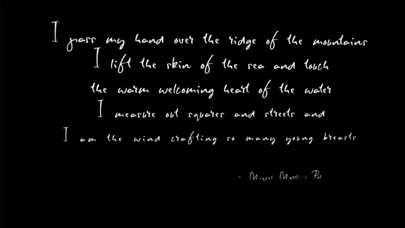 I pass my hand over the ridge of the mountains
I lift the skin of the sea and touch
the warm welcoming heart of the water
I measure out squares and streets and
I am the wind crafting so many young breasts
- Miquel Martí i Pol